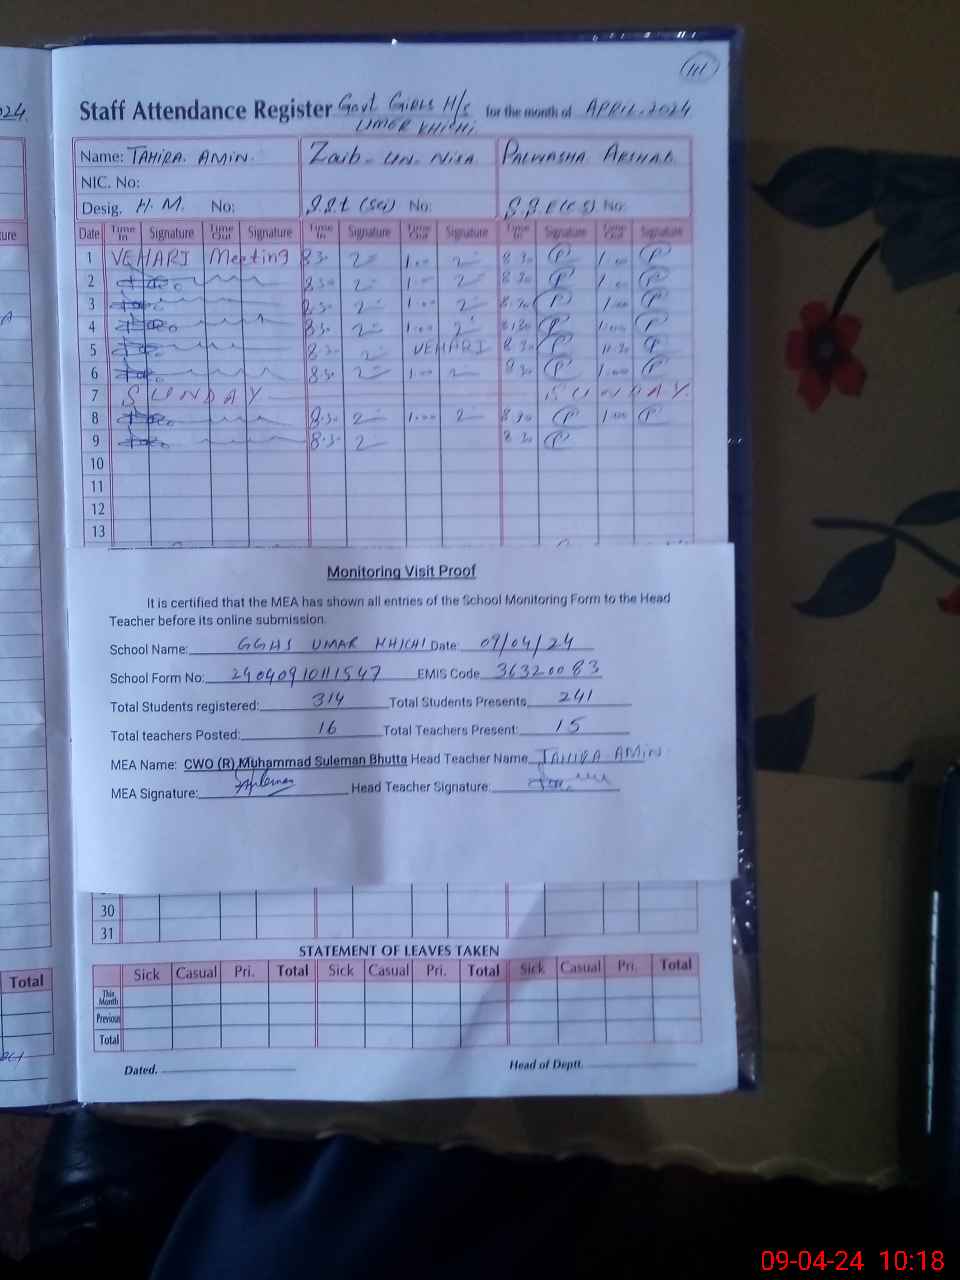 111
024
Staff Attendance Register Govt Girls H/s for the month of APRIL. 2024
UMER KHICHI.
Name: TAHIRA. AMIN. Zaib-un-Nisa PALWASHA ARSHAD
NIC. No:
Desig. H.M. No: S.S.t (Sci) No: No:
Date Time In Signature Time Out Signature Time In Signature Time Out Signature Time In Signature Time Out Signature
1 VEHARI Meeting 8.30 1.00 8.30 1.00
2 8.30 1.00 8.30 1.00
3 8.30 1.00 8.30 1.00
4 8.30 1.00 8.30 1.00
5 8.30 VEHARI 8.30 11.30
6 8.30 1.00 8.30 1.00
7 SUNDAY SUNDAY.
8 8.30 1.00 8.30 1.00
9 8.30 8.30
10
11
12
13
Monitoring Visit Proof
It is certified that the MEA has shown all entries of the School Monitoring Form to the Head
Teacher before its online submission.
School Name: GGHS UMAR KHICHI Date: 09/04/24
School Form No: 2404091011547 EMIS Code 36320083
Total Students registered: 314 Total Students Presents 241
Total teachers Posted: 16 Total Teachers Present: 15
MEA Name: CWO (R) Muhammad Suleman Bhutta Head Teacher Name TAHIRA AMIN
MEA Signature: Head Teacher Signature:
30
31
STATEMENT OF LEAVES TAKEN
Total
Sick Casual Pri. Total Sick Casual Pri. Total Sick Casual Pri. Total
This Month
Previous
Total
Dated. Head of Deptt.
09-04-24 10:18